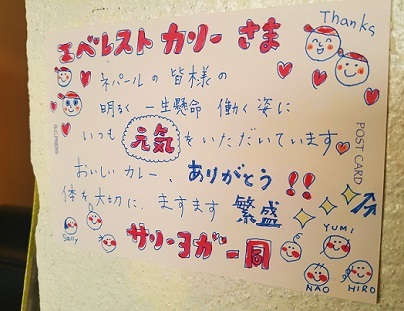 Thanks
エベレスト カリー さま
ネパールの 皆様の
明るく 一生懸命 働く姿に
いつも 元気 をいただいています
おいしい カレー、ありがとう!!
体を大切に、ますます 繁盛
サリーヨガ 一同
YUMI
NAO
HIRO
POST CARD